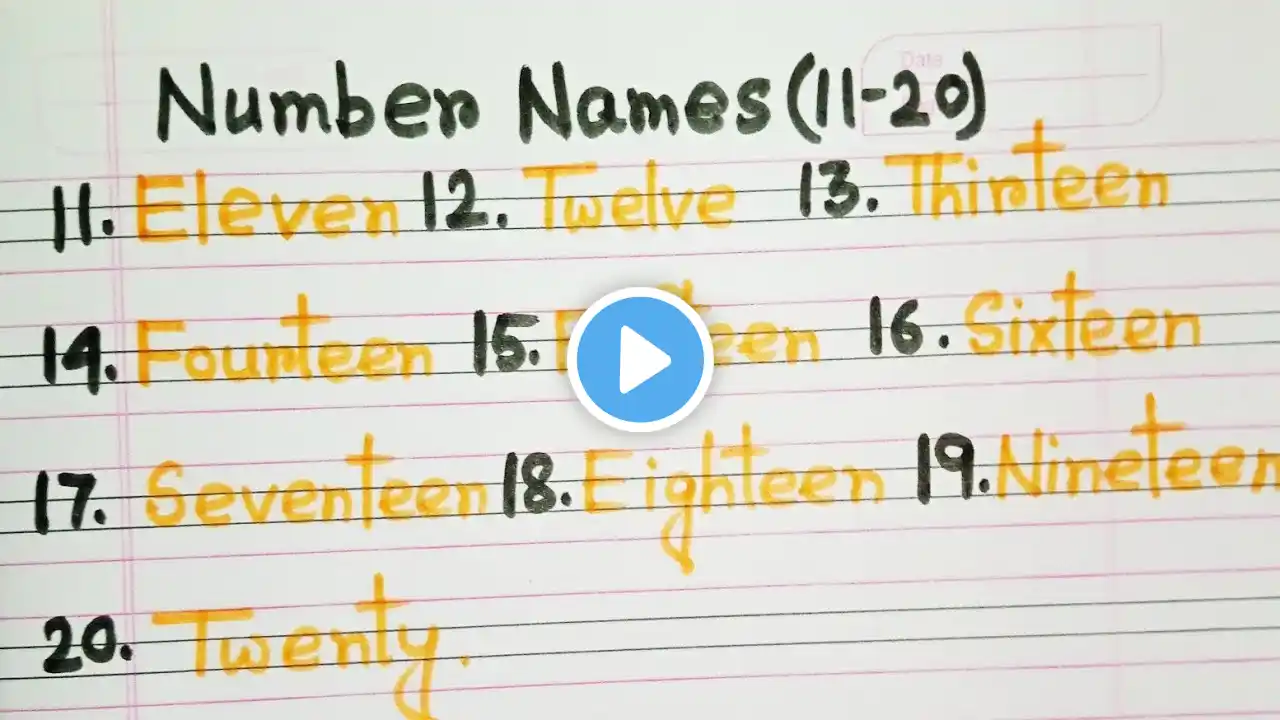 Date
Number Names (11-20)
11. Eleven 12. Twelve 13. Thirteen
14. Fourteen 15. 16. Sixteen
17. Seventeen 18. Eighteen 19. Nineteen
20. Twenty.